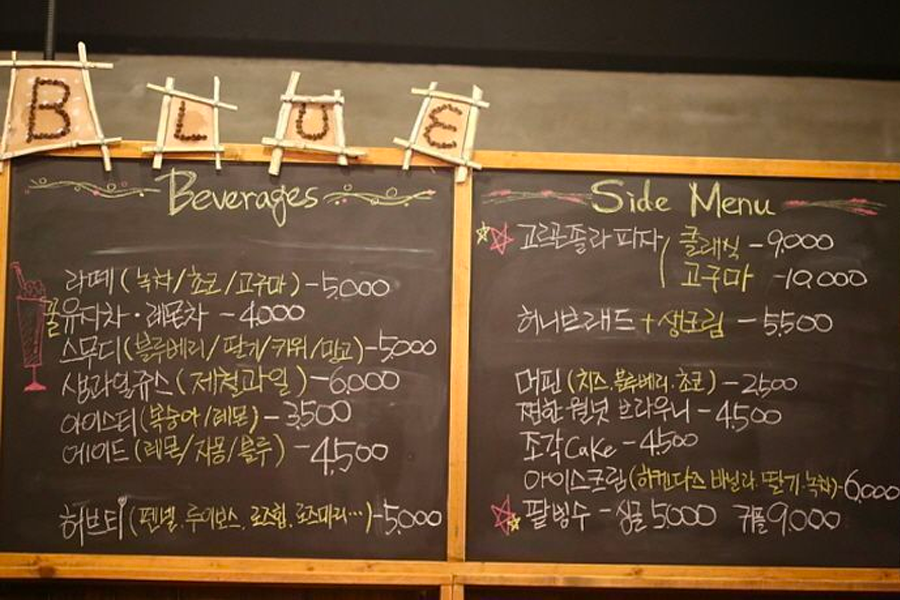 BLUE
Beverages
라떼 (녹차/초코/고구마) - 5,000
꿀유자차 · 레몬차 - 4,000
스무디 (블루베리/딸기/키위/망고) - 5,000
생과일쥬스 (제철과일) - 6,000
아이스티 (복숭아/레몬) - 3,500
에이드 (레몬/자몽/블루) - 4,500
허브티 (펜넬, 루이보스, 로즈힙, 로즈마리...) - 5,000
Side Menu
고르곤졸라 피자 ( 클래식 - 9,000
고구마 - 10,000
허니브래드 + 생크림 - 5,500
머핀 (치즈, 블루베리, 초코) - 2500
찐한 월넛 브라우니 - 4,500
조각 Cake - 4500
아이스크림 (하겐다즈 바닐라, 딸기, 녹차) - 6,000
팥빙수 - 싱글 5,000 커플 9,000